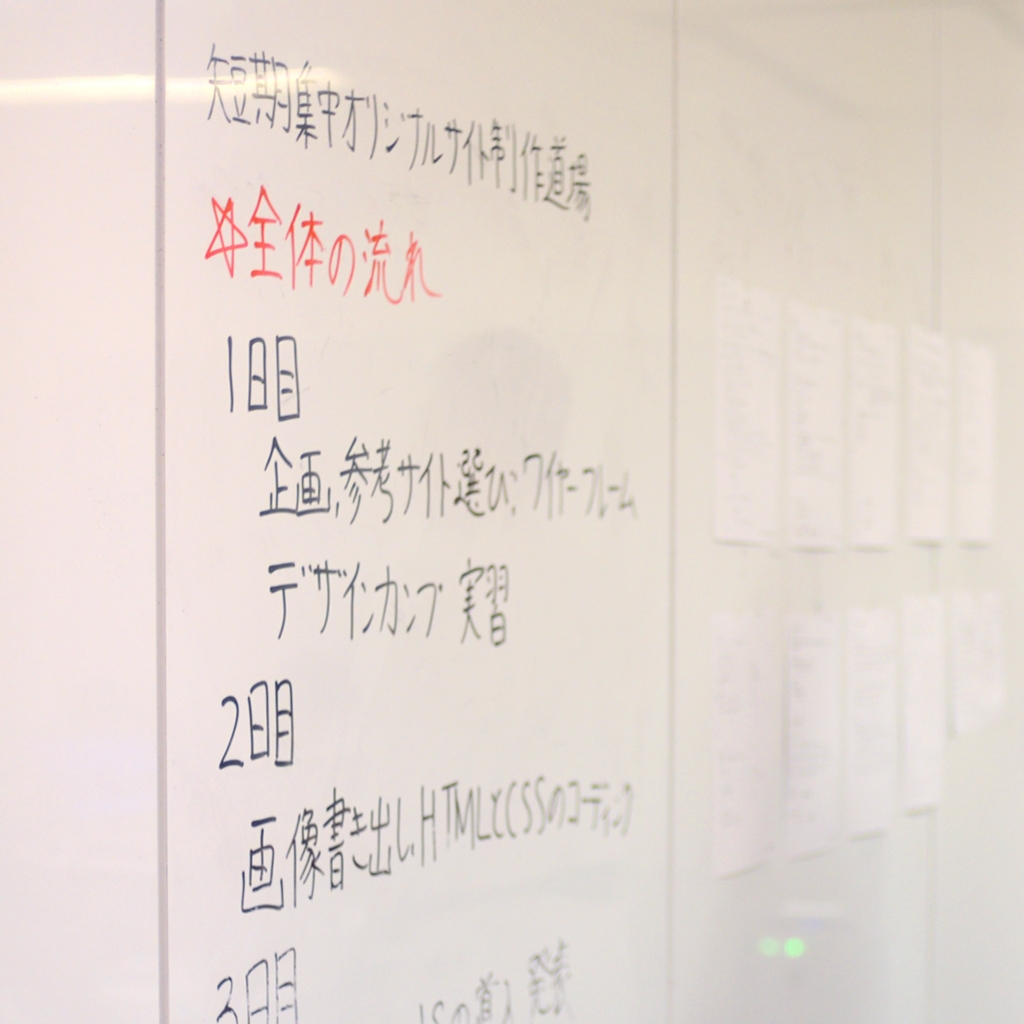 短期集中オリジナルサイト制作道場
☆全体の流れ
1日目
企画、参考サイト選び、ワイヤーフレーム
デザインカンプ 実習
2日目
画像書き出し、HTMLとCSSのコーディング
3日目
JSの導入 発表